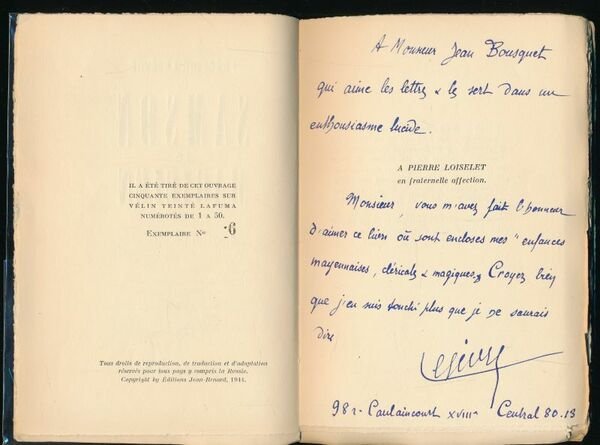 IL A ÉTÉ TIRÉ DE CET OUVRAGE
CINQUANTE EXEMPLAIRES SUR
VÉLIN TEINTÉ LAFUMA
NUMÉROTÉS DE 1 A 50.
EXEMPLAIRE No 6
Tous droits de reproduction, de traduction et d'adaptation
réservés pour tous pays y compris la Russie.
Copyright by Éditions Jean-Renard, 1944.
A Monsieur Jean Bousquet
qui aime les lettres & les sert dans un
enthousiasme lucide.
A PIERRE LOISELET
en fraternelle affection.
Monsieur, vous m'avez fait l'honneur
d'aimer ce livre où sont encloses mes "enfances
mayennaises, cléricales & magiques". Croyez bien
que j'en suis touché plus que je ne saurais
dire
98 r. Caulaincourt XVIII Central 80.13